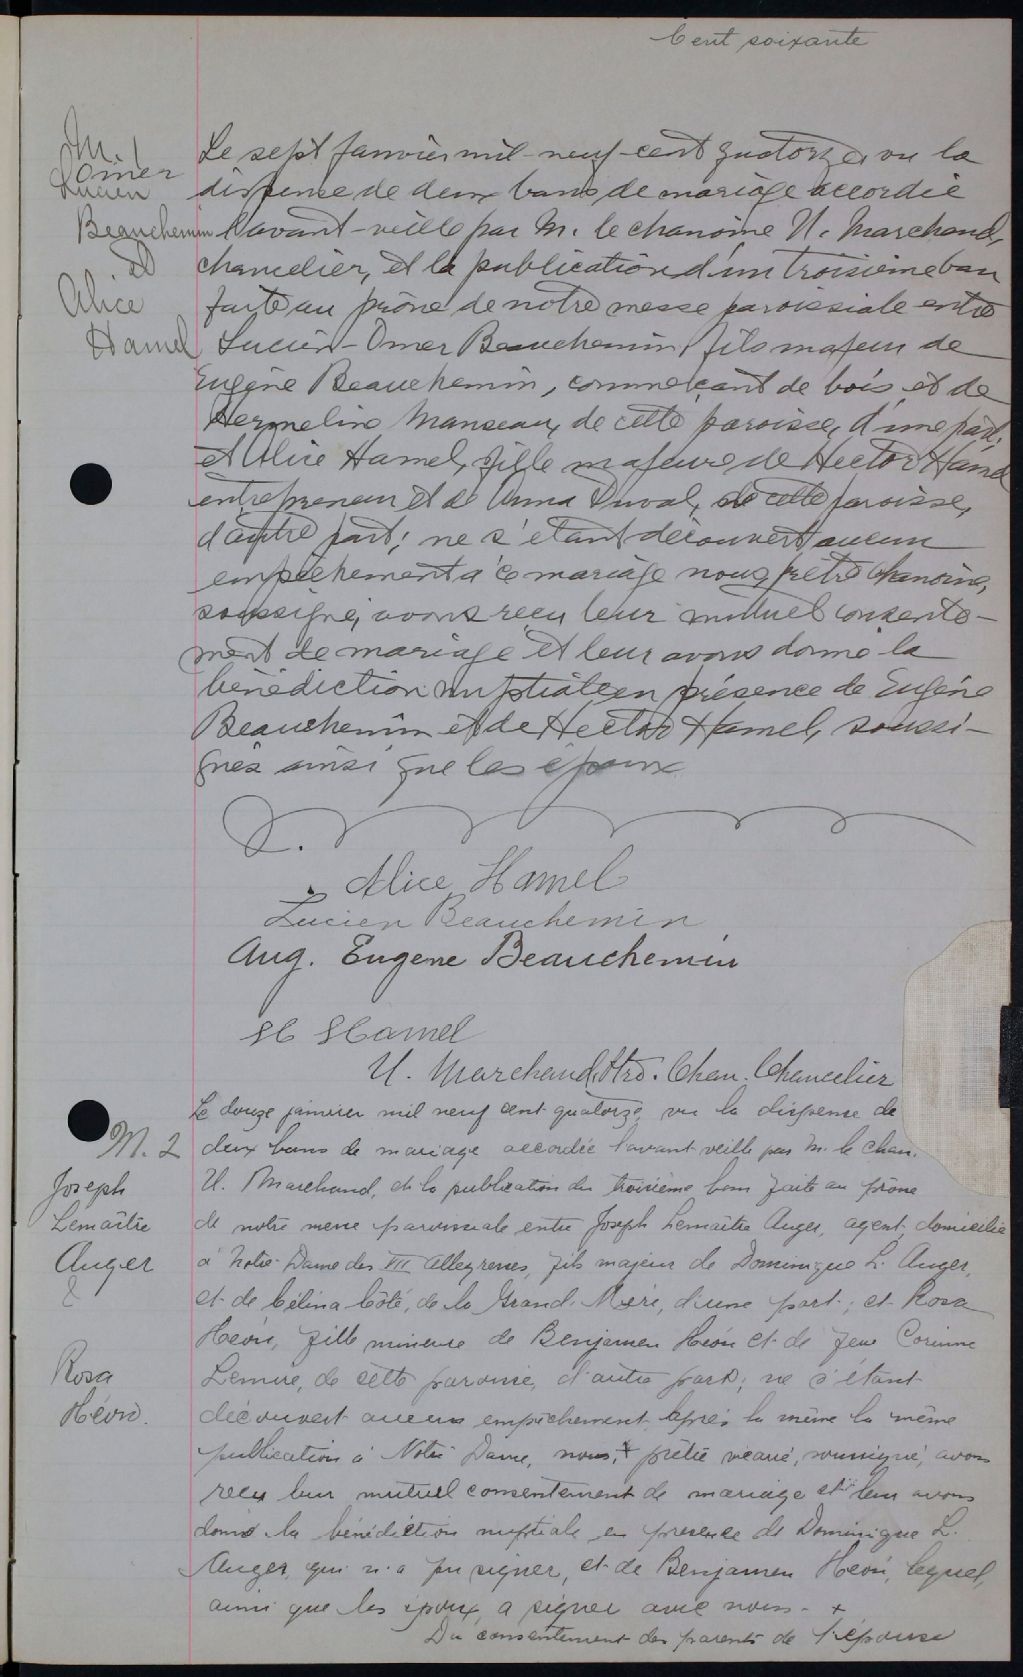 Cent soixante
M. 1
Omer
Lucien
Beauchemin
et
Alice
Hamel
Le sept janvier mil-neuf-cent quatorze, vu la
dispense de deux bans de mariage accordée
l'avant-veille par M. le chanoine U. Marchand,
chancelier, et la publication d'un troisième ban
faite au prône de notre messe paroissiale entre
Lucien-Omer Beauchemin, fils majeur de
Eugène Beauchemin, commerçant de bois et de
Hermeline Manseau, de cette paroisse, d'une part;
et Alice Hamel, fille majeure de Hector Hamel
entrepreneur et de Anna Duval, de cette paroisse,
d'autre part; ne s'étant découvert aucun
empêchement à ce mariage nous, prêtre chanoine,
soussigné, avons reçu leur mutuel consente-
ment de mariage et leur avons donné la
bénédiction nuptiale en présence de Eugène
Beauchemin et de Hector Hamel, soussi-
gnés ainsi que les époux
Alice Hamel
Lucien Beauchemin
Aug. Eugene Beauchemin
H Hamel
U. Marchand, Ptre. Chan. Chancelier
M. 2
Joseph
Lemaître
Auger
&
Rosa
Héon.
Le douze janvier mil neuf cent quatorze, vu la dispense de
deux bans de mariage accordée l'avant veille par M. le chan.
U. Marchand, et la publication du troisième ban faite au prône
de notre messe paroissiale entre Joseph Lemaître Auger, agent, domicilié
à Notre-Dame des VII Allegresses, fils majeur de Dominique L. Auger,
et de Célina Côté, de la Grand'Mère, d'une part; et Rosa
Héon, fille mineure de Benjamen Héon et de feue Corinne
Lemire, de cette paroisse, d'autre part; ne s'étant
découvert aucun empêchement après la même la même
publication à Notre Dame, nous, + prêtre vicaire, soussigné, avons
reçu leur mutuel consentement de mariage et leur avons
donné la bénédiction nuptiale en présence de Dominique L.
Auger, qui n'a pu signer, et de Benjamen Héon, lequel,
ainsi que les époux, a signer avec nous. +
Du consentement des parents de l'épouse